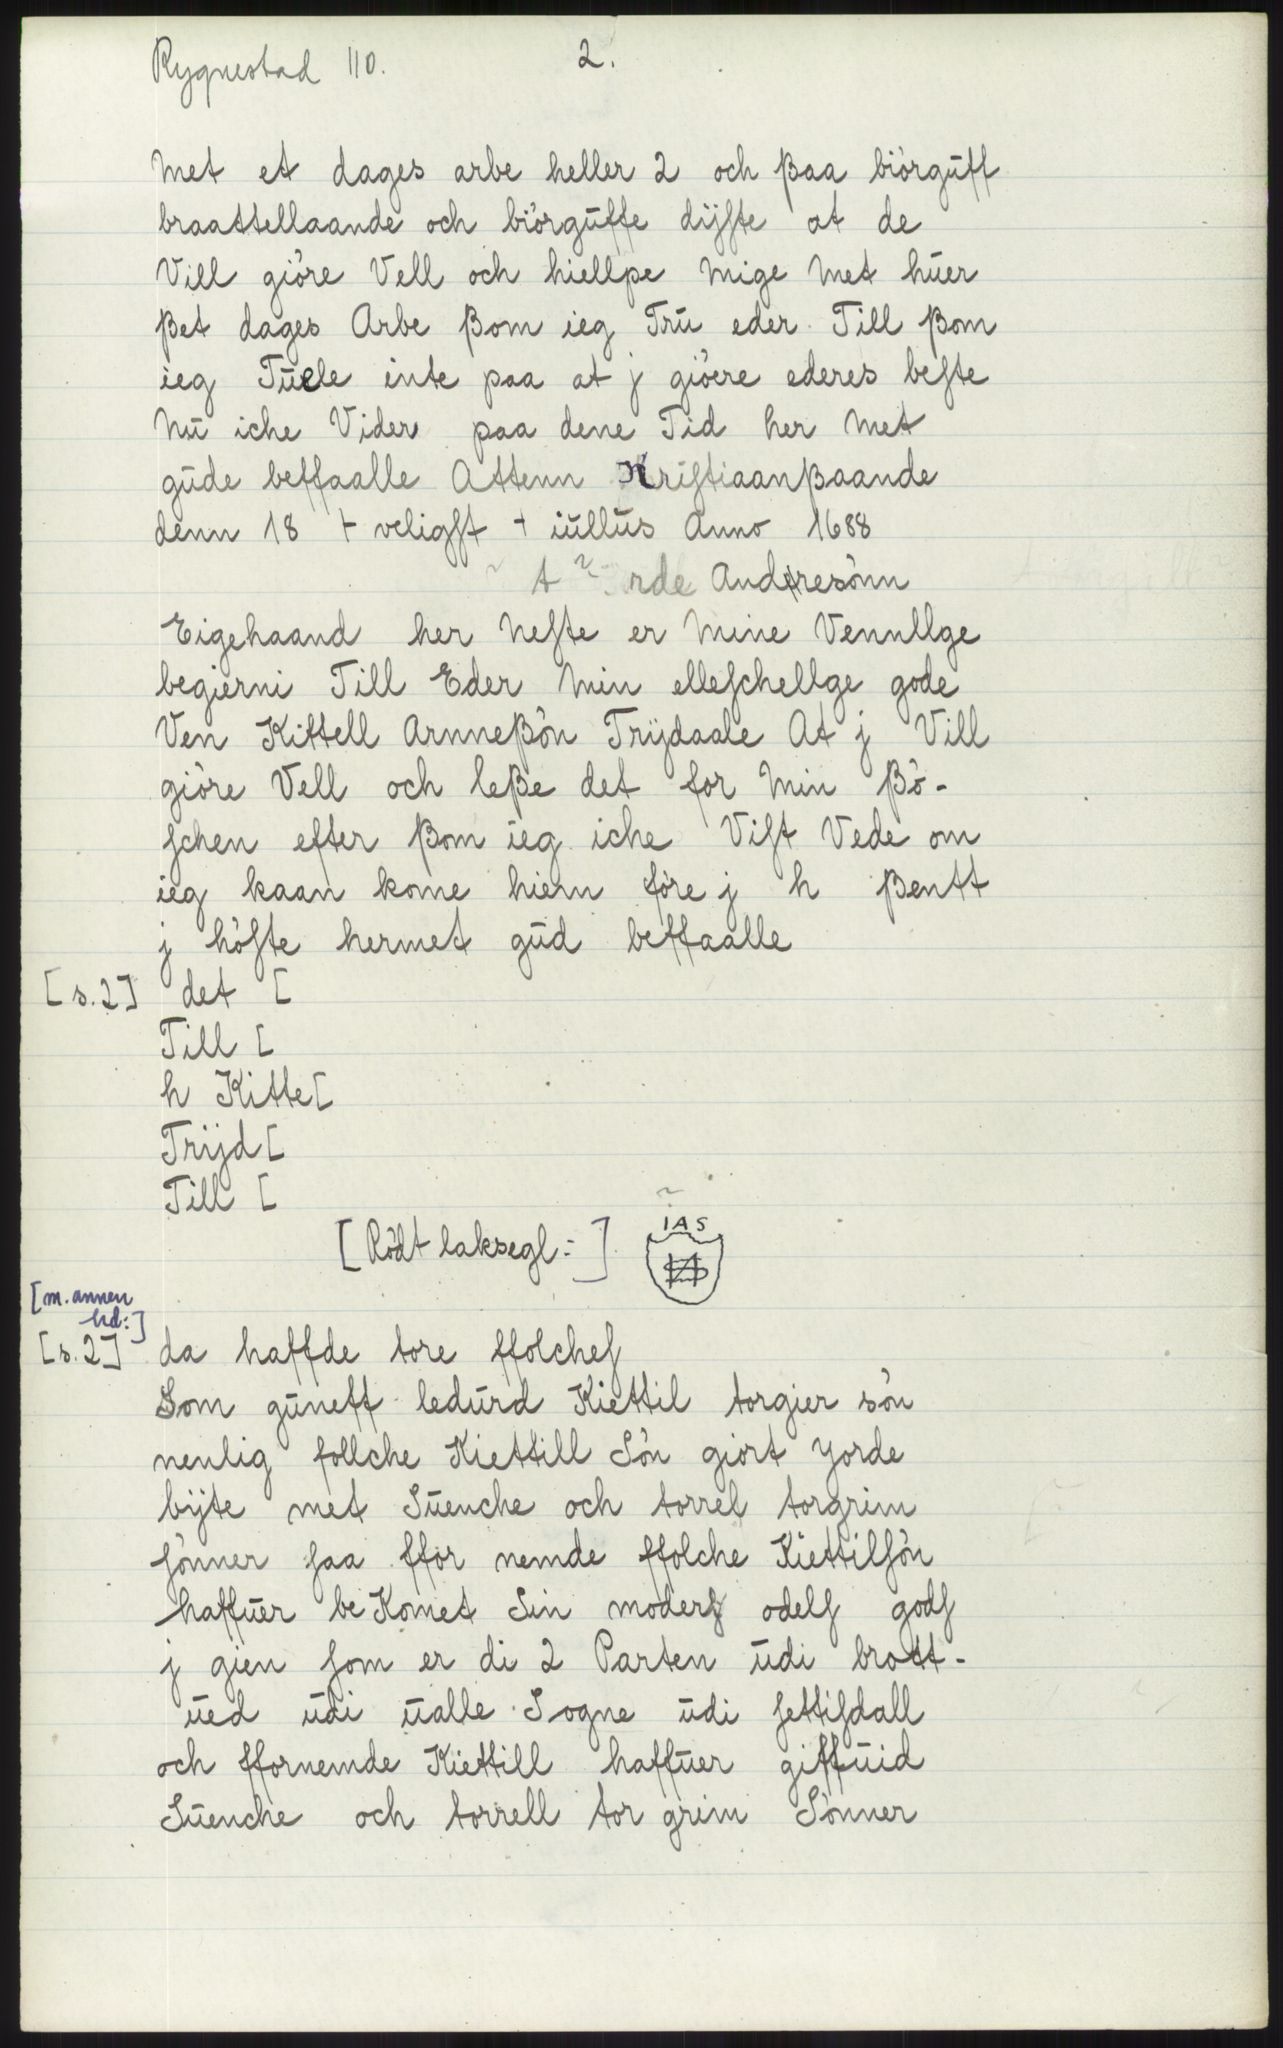 Rygnestad 110. 2.
Met et dages arbe heller 2 och ßaa biörguff
braattellaande och biörguffe dijſte at de
Vill giöre Vell och hiellpe Mige Met huer
ßet dages Arbe ßom ieg Tru eder Till ßom
ieg Tuele inte paa at j giöere ederes beſte
Nu iche Vider paa dene Tid her Met
gude beffaalle Attenn Kriſtiaanßaande
denn 18 + veligſt + iullus Anno 1688
A ~ rde Anderesönn
Eigehaand her Neſte er Mine Vennllge
begierni Till Eder Min elleſchellge gode
Ven Kittell Arnneßön Trijdaale At j Vill
giöre Vell och leße det for Min ßö-
ſchen efter ßom ieg iche Viſt Vede om
ieg kaan kome hiem före j h ßentt
j höſte hermet gud beffaalle
[s.2] det [
Till [
h Kitte[
Trijd[
Till [
[Rödt laksegl:] IAS
[m. annen hd:]
[s.2] da haffde tore ffolcheſ
Som guneff ledurd Kiettil torgier sön
nenlig follche Kiettill Sön giort yorde
bijte met Suenche och torrel torgrim
ſönner ſaa ffor nemde ffolche Kiettilſön
haffuer be Komet Sin moderſ odelſ godſ
j gien ſom er di 2 Parten udi brott-
ued udi ualle Sogne udi ſettiſdall
och ffornemde Kiettill haffuer giffuid
Suenche och torrell tor grim Sönner